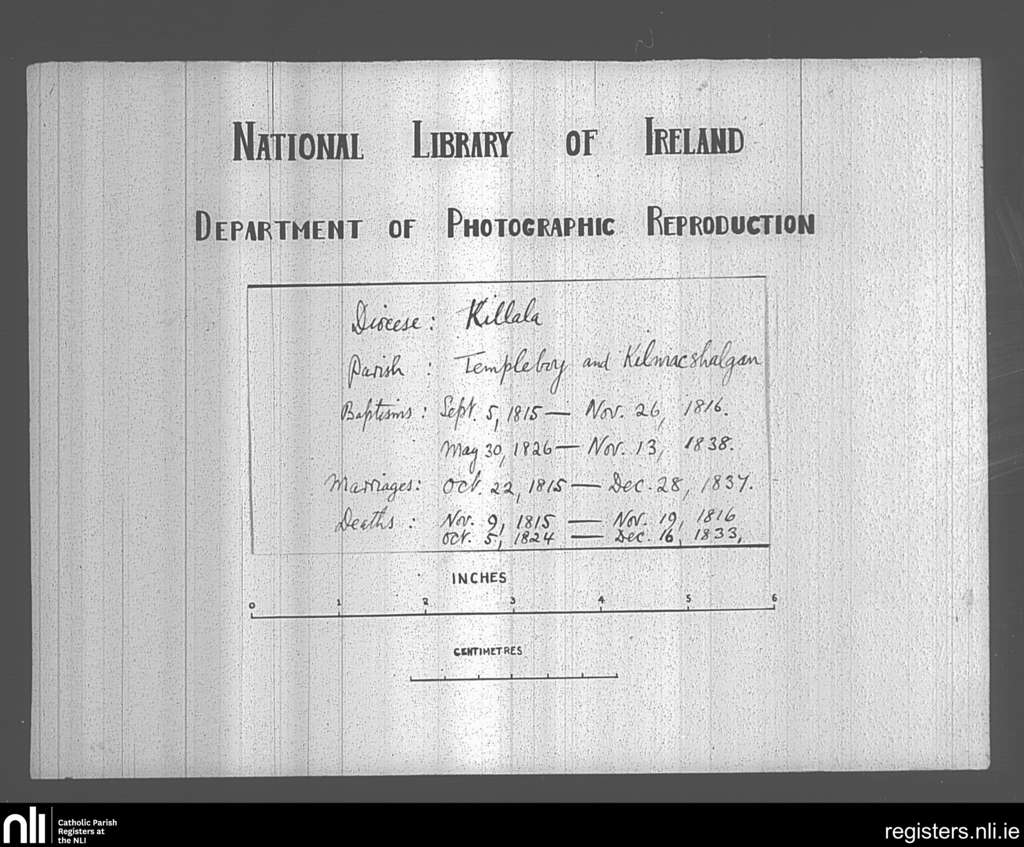 NATIONAL LIBRARY OF IRELAND
DEPARTMENT OF PHOTOGRAPHIC REPRODUCTION
Diocese: Killala
Parish : Templeboy and Kilmacshalgan
Baptisms : Sept. 5, 1815 — Nov. 26, 1816.
May 30, 1826 — Nov. 13, 1838.
Marriages: Oct. 22, 1815 — Dec. 28, 1837.
Deaths : Nov. 9, 1815 — Nov. 19, 1816
Oct. 5, 1824 — Dec. 16, 1833,
INCHES
0 1 2 3 4 5 6
CENTIMETRES
nli Catholic Parish
Registers at
the NLI
registers.nli.ie